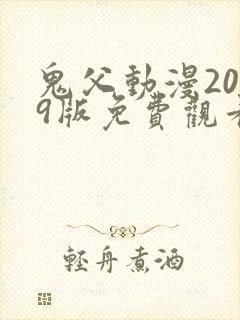 鬼父動漫20
9版免費觀看
輕舟煮酒